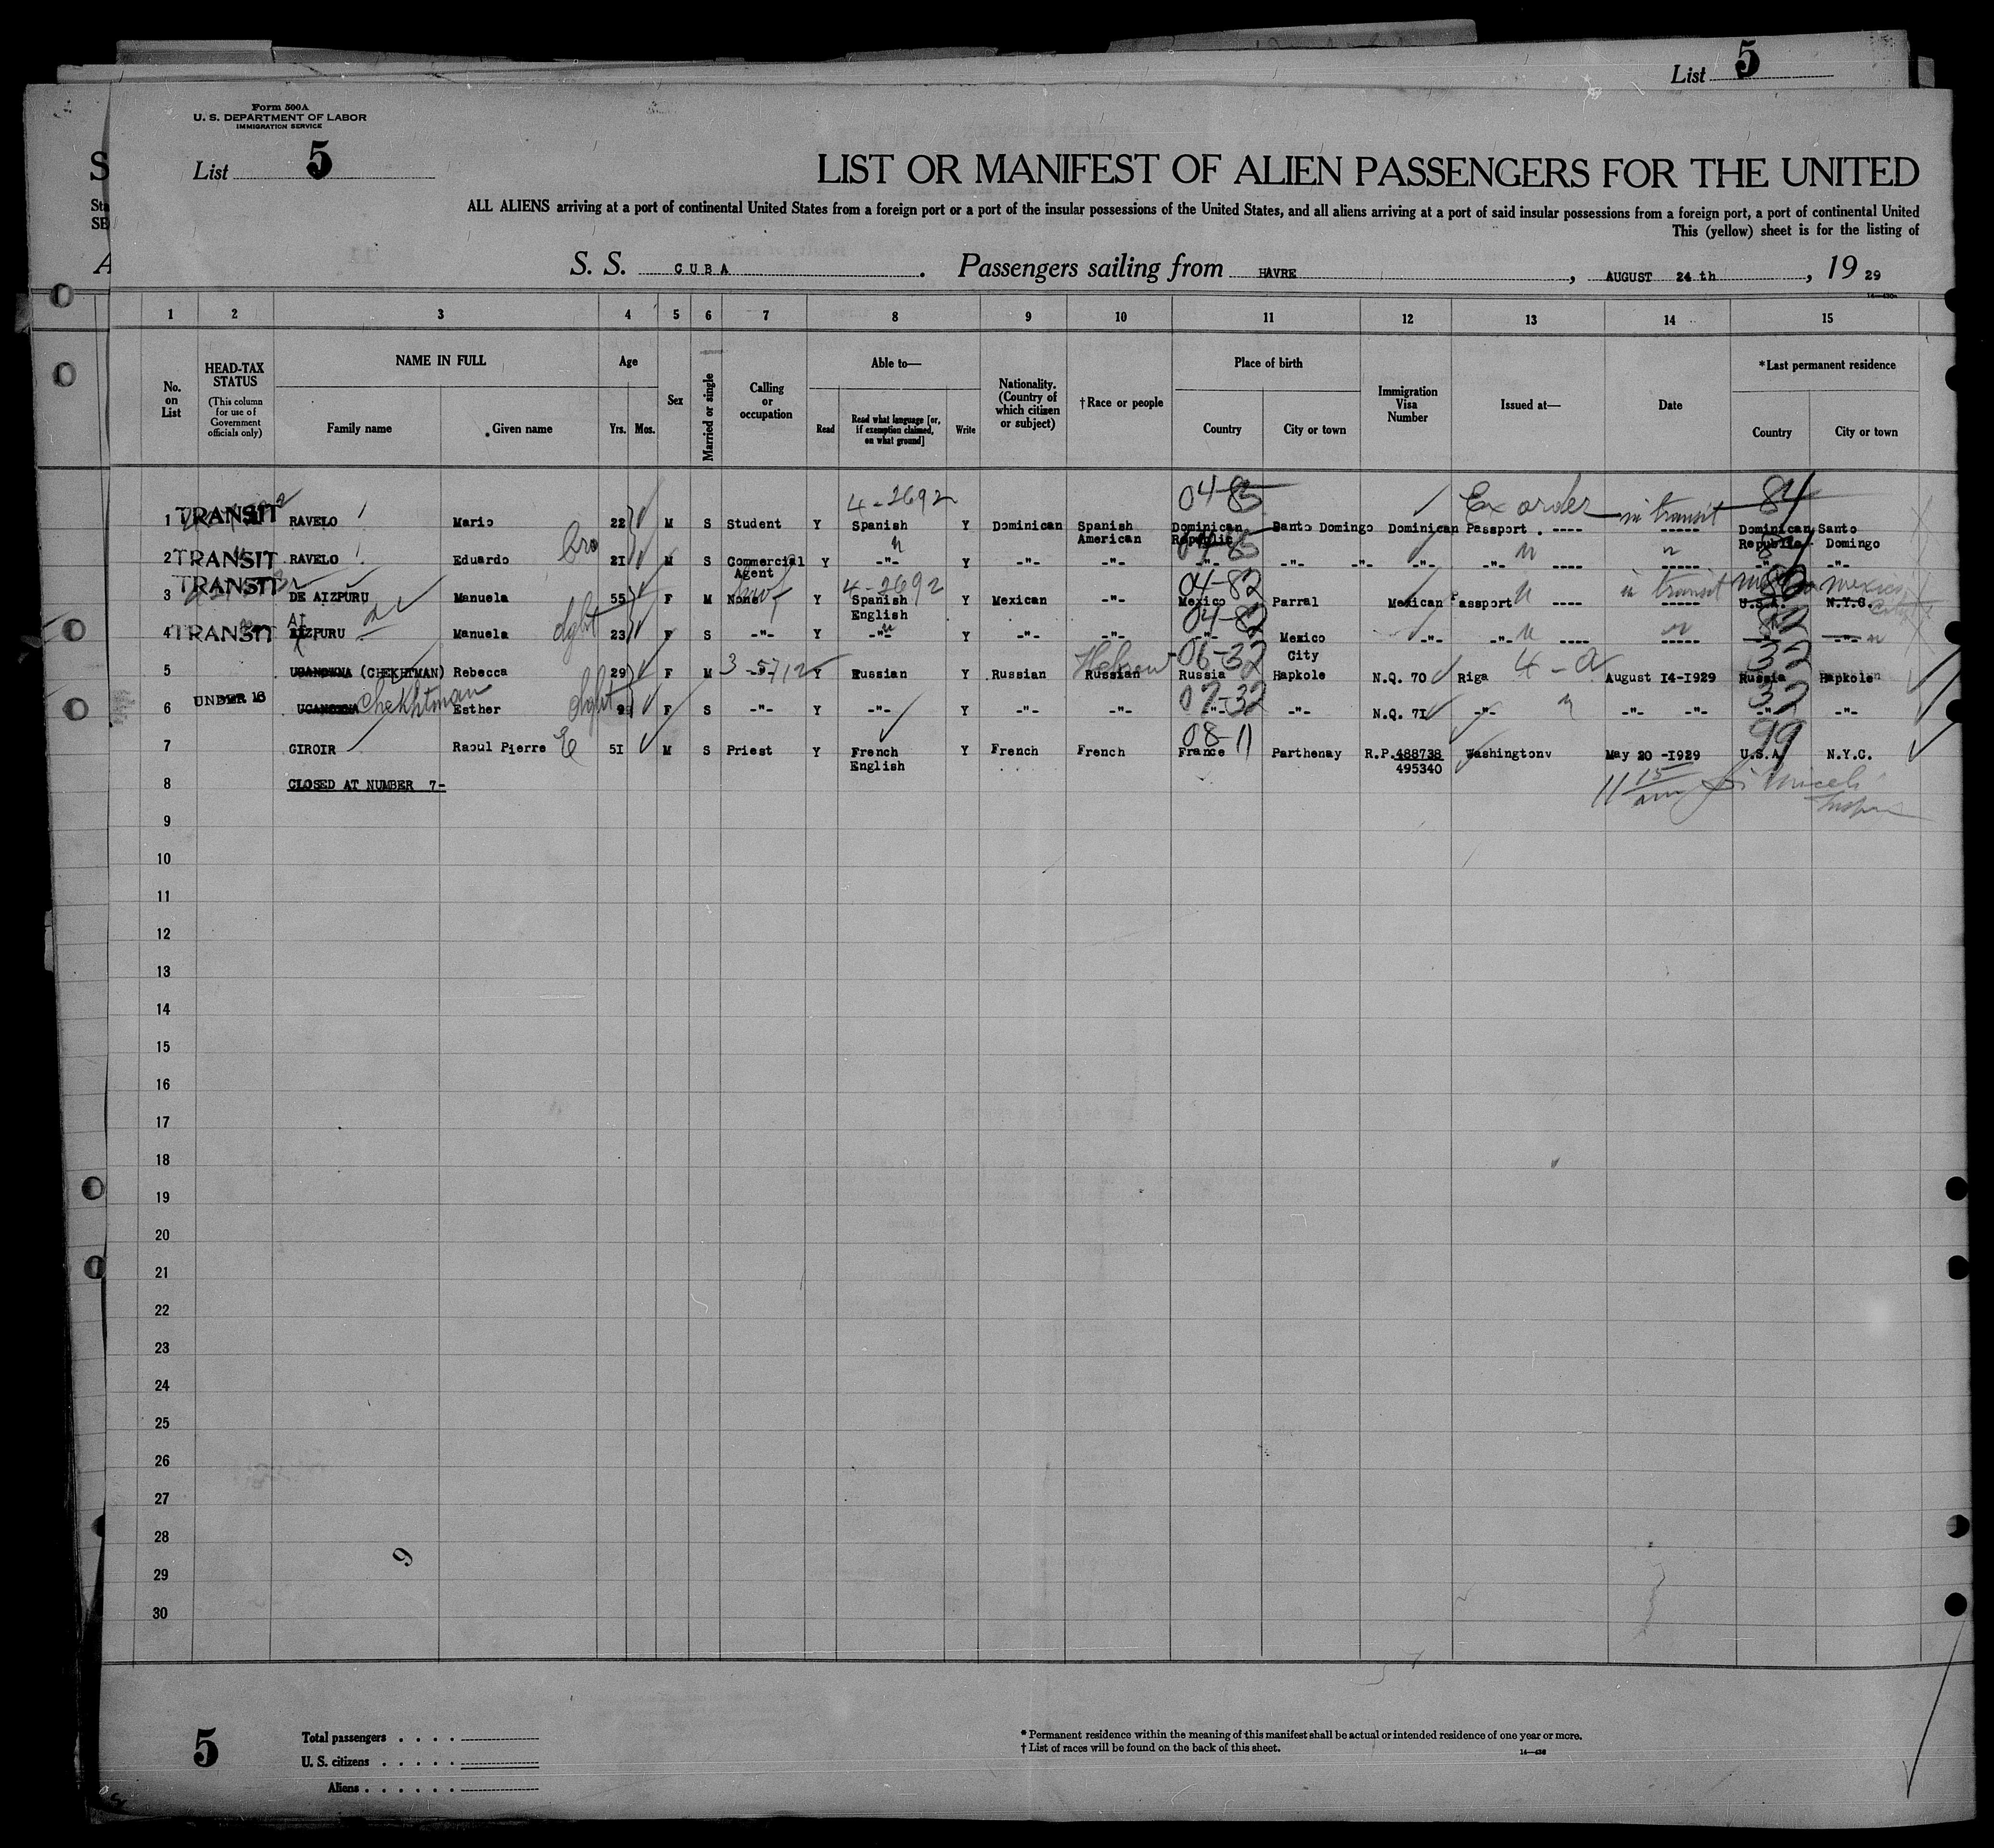 List 5
Form 500A
U. S. DEPARTMENT OF LABOR
IMMIGRATION SERVICE
List 5
LIST OR MANIFEST OF ALIEN PASSENGERS FOR THE UNITED
ALL ALIENS arriving at a port of continental United States from a foreign port or a port of the insular possessions of the United States, and all aliens arriving at a port of said insular possessions from a foreign port, a port of continental United
This (yellow) sheet is for the listing of
S. S. CUBA. Passengers sailing from HAVRE, AUGUST 24 th, 19 29
1 2 3 4 5 6 7 8 9 10 11 12 13 14 15
No. on List
HEAD-TAX STATUS (This column for use of Government officials only)
NAME IN FULL Family name Given name
Age Yrs. Mos.
Sex
Married or single
Calling or occupation
Able to— Read Read what language [or, if exemption claimed, on what ground] Write
Nationality. (Country of which citizen or subject)
†Race or people
Place of birth Country City or town
Immigration Visa Number
Issued at—
Date
*Last permanent residence Country City or town
4-2692 04-85 Ex order in transit 84
1 TRANSIT RAVELO Mario 22 M S Student Y Spanish Y Dominican Spanish American Dominican Republic Santo Domingo Dominican Passport . ---- ----- Dominican Republic Santo Domingo
2 TRANSIT RAVELO Eduardo bro 21 M S Commercial Agent Y -"- Y -"- -"- -"- -"- -"- -"- -"- ---- ----- -"- -"-
4-2692 04-82 in transit Mexico
3 TRANSIT DE AIZPURU Manuela 55 F M None Y Spanish English Y Mexican -"- Mexico Parral Mexican Passport ---- ----- U.S.A. N.Y.C.
04-82
4 TRANSIT AIZPURU Manuela dght 23 F S -"- Y -"- Y -"- -"- -"- Mexico City -"- -"- ---- -"- -"-
3-5712 Hebrew 06-32 4-a 32
5 UGANOWNA (CHEKHTMAN) Rebecca 29 F M -"- Y Russian Y Russian Russian Russia Hapkole N.Q. 70 Riga August 14-1929 Russia Hapkole
07-32 32
6 UNDER 16 UGANOWNA Chekhtman Esther dght 9 F S -"- Y -"- Y -"- -"- -"- -"- N.Q. 71 -"- -"- -"- -"- -"-
08-11 99
7 GIROIR Raoul Pierre E 51 M S Priest Y French English Y French French France Parthenay R.P.488738 495340 Washington May 20 -1929 U.S.A. N.Y.C.
8 CLOSED AT NUMBER 7- 11 15 am
9
10
11
12
13
14
15
16
17
18
19
20
21
22
23
24
25
26
27
28
29
30
9
5
Total passengers . . . .
U. S. citizens . . . . .
Aliens . . . . . .
* Permanent residence within the meaning of this manifest shall be actual or intended residence of one year or more.
† List of races will be found on the back of this sheet.